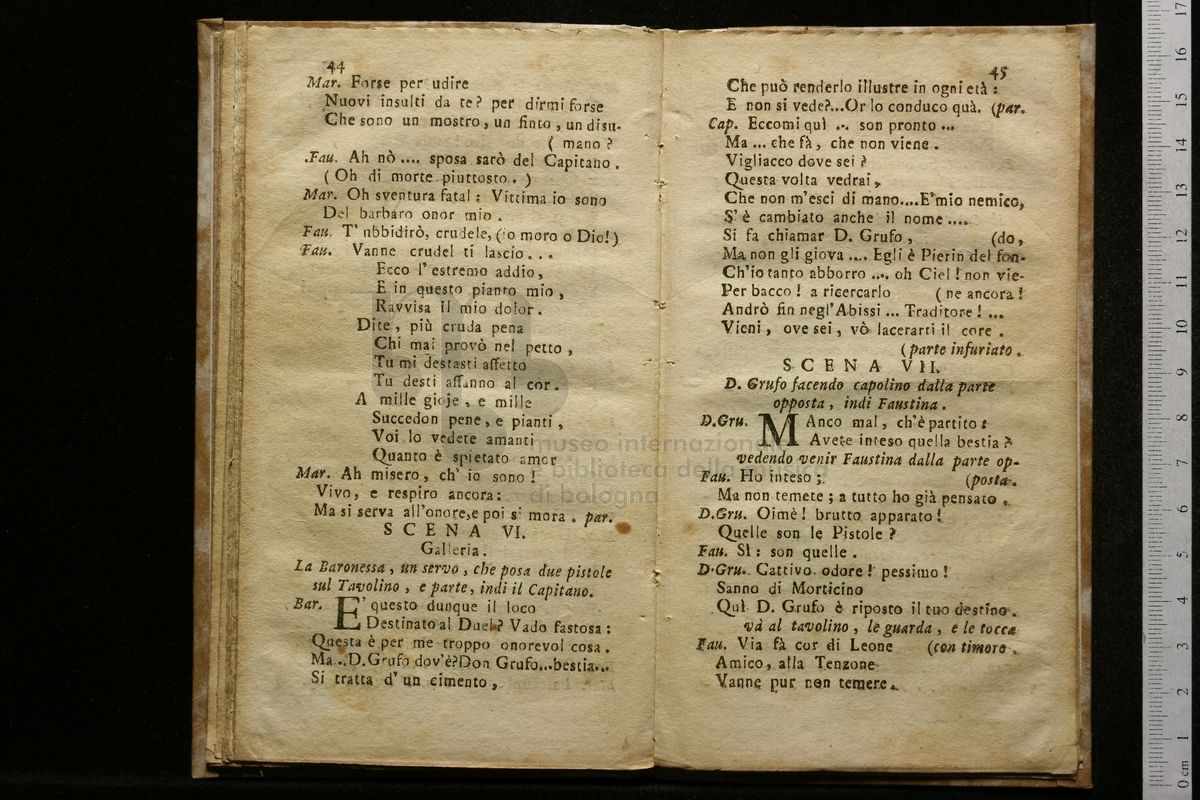 44
Mar. Forse per udire
Nuovi insulti da te? per dirmi forse
Che sono un mostro, un finto, un disu-
( mano ?
Fau. Ah nò .... sposa sarò del Capitano.
( Oh di morte piuttosto. )
Mar. Oh sventura fatal: Vittima io sono
Del barbaro onor mio.
Fau. T' ubbidirò, crudele, (io moro o Dio!)
Fau. Vanne crudel ti lascio...
Ecco l' estremo addio,
E in questo pianto mio,
Ravvisa il mio dolor.
Dite, più cruda pena
Chi mai provò nel petto,
Tu mi destasti affetto
Tu desti affanno al cor.
A mille gioje, e mille
Succedon pene, e pianti,
Voi lo vedete amanti
Quanto è spietato amor
Mar. Ah misero, ch' io sono!
Vivo, e respiro ancora:
Ma si serva all'onore,e poi si mora. par.
SCENA VI.
Galleria.
La Baronessa, un servo, che posa due pistole
sul Tavolino, e parte, indi il Capitano.
Bar. E' questo dunque il loco
Destinato al Duel? Vado fastosa:
Questa è per me troppo onorevol cosa.
Ma...D.Grufo dov'è?Don Grufo...bestia...
Si tratta d' un cimento,
45
Che può renderlo illustre in ogni età:
E non si vede?...Or lo conduco quà. (par.
Cap. Eccomi quì ... son pronto ...
Ma ... che fà, che non viene.
Vigliacco dove sei?
Questa volta vedrai,
Che non m'esci di mano....E'mio nemico,
S'è cambiato anche il nome ....
Si fa chiamar D. Grufo, (do,
Ma non gli giova .... Egli è Pierin del fon-
Ch'io tanto abborro .... oh Ciel! non vie-
Per bacco! a ricercarlo ( ne ancora!
Andrò fin negl'Abissi ... Traditore! ...
Vieni, ove sei, vò lacerarti il core.
(parte infuriato.
SCENA VII.
D. Grufo facendo capolino dalla parte
opposta, indi Faustina.
D.Gru. MAnco mal, ch'è partito:
Avete inteso quella bestia?
vedendo venir Faustina dalla parte op-
Fau. Ho inteso; (posta.
Ma non temete; a tutto ho già pensato.
D.Gru. Oimè! brutto apparato!
Quelle son le Pistole?
Fau. Sì: son quelle.
D.Gru. Cattivo odore! pessimo!
Sanno di Morticino
Quì D. Grufo è riposto il tuo destino.
và al tavolino, le guarda, e le tocca
Fau. Via fà cor di Leone (con timore.
Amico, alla Tenzone
Vanne pur non temere.
museo internazionale
e biblioteca della musica
di bologna
0 cm 1 2 3 4 5 6 7 8 9 10 11 12 13 14 15 16 17